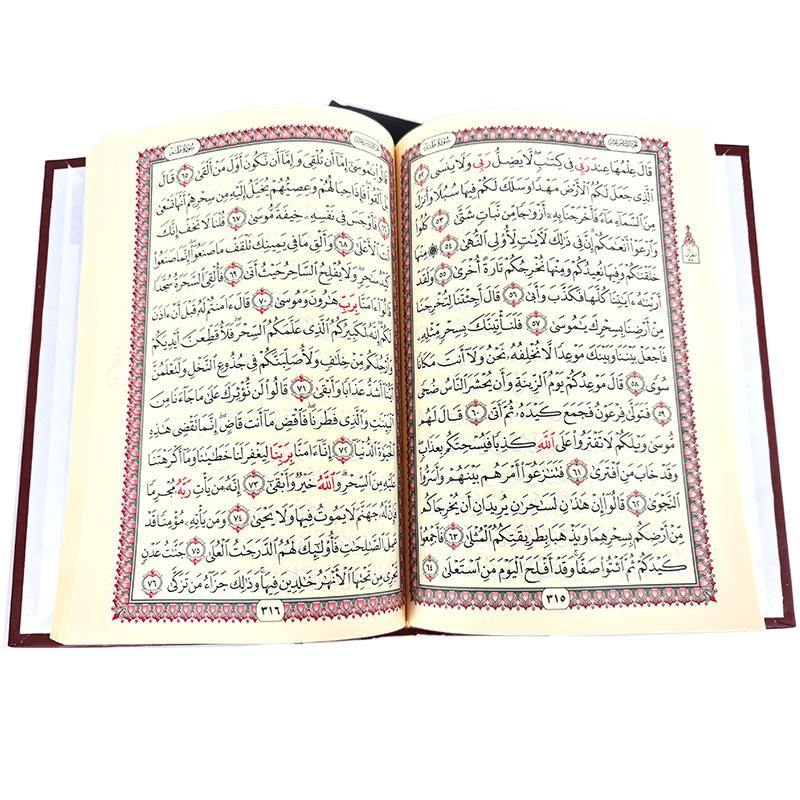 الجُزءُ السَّادِسَ عَشَرَ سُورَةُ طه
قَالَ عِلْمُهَا عِندَ رَبِّي فِي كِتَٰبٍ ۖ لَّا يَضِلُّ رَبِّي وَلَا يَنسَى ٥٢
ٱلَّذِي جَعَلَ لَكُمُ ٱلْأَرْضَ مَهْدًا وَسَلَكَ لَكُمْ فِيهَا سُبُلًا وَأَنزَلَ
مِنَ ٱلسَّمَآءِ مَآءً فَأَخْرَجْنَا بِهِۦٓ أَزْوَٰجًا مِّن نَّبَاتٍ شَتَّىٰ ٥٣ كُلُوا۟
وَٱرْعَوْا۟ أَنْعَٰمَكُمْ ۗ إِنَّ فِي ذَٰلِكَ لَءَايَٰتٍ لِّأُو۟لِي ٱلنُّهَىٰ ٥٤ ۞ مِنْهَا
خَلَقْنَٰكُمْ وَفِيهَا نُعِيدُكُمْ وَمِنْهَا نُخْرِجُكُمْ تَارَةً أُخْرَىٰ ٥٥ وَلَقَدْ
أَرَيْنَٰهُ ءَايَٰتِنَا كُلَّهَا فَكَذَّبَ وَأَبَىٰ ٥٦ قَالَ أَجِئْتَنَا لِتُخْرِجَنَا
مِنْ أَرْضِنَا بِسِحْرِكَ يَٰمُوسَىٰ ٥٧ فَلَنَأْتِيَنَّكَ بِسِحْرٍ مِّثْلِهِۦ
فَٱجْعَلْ بَيْنَنَا وَبَيْنَكَ مَوْعِدًا لَّا نُخْلِفُهُۥ نَحْنُ وَلَآ أَنتَ مَكَانًا
سُوًى ٥٨ قَالَ مَوْعِدُكُمْ يَوْمُ ٱلزِّينَةِ وَأَن يُحْشَرَ ٱلنَّاسُ ضُحًى
٥٩ فَتَوَلَّىٰ فِرْعَوْنُ فَجَمَعَ كَيْدَهُۥ ثُمَّ أَتَىٰ ٦٠ قَالَ لَهُم
مُّوسَىٰ وَيْلَكُمْ لَا تَفْتَرُوا۟ عَلَى ٱللَّهِ كَذِبًا فَيُسْحِتَكُم بِعَذَابٍ ۖ
وَقَدْ خَابَ مَنِ ٱفْتَرَىٰ ٦١ فَتَنَٰزَعُوٓا۟ أَمْرَهُم بَيْنَهُمْ وَأَسَرُّوا۟
ٱلنَّجْوَىٰ ٦٢ قَالُوٓا۟ إِنْ هَٰذَٰنِ لَسَٰحِرَٰنِ يُرِيدَانِ أَن يُخْرِجَاكُم
مِّنْ أَرْضِكُم بِسِحْرِهِمَا وَيَذْهَبَا بِطَرِيقَتِكُمُ ٱلْمُثْلَىٰ ٦٣ فَأَجْمِعُوا۟
كَيْدَكُمْ ثُمَّ ٱئْتُوا۟ صَفًّا ۚ وَقَدْ أَفْلَحَ ٱلْيَوْمَ مَنِ ٱسْتَعْلَىٰ ٦٤
٣١٥
سُورَةُ طه
قَالُوا۟ يَٰمُوسَىٰٓ إِمَّآ أَن تُلْقِيَ وَإِمَّآ أَن نَّكُونَ أَوَّلَ مَنْ أَلْقَىٰ ٦٥ قَالَ
بَلْ أَلْقُوا۟ ۖ فَإِذَا حِبَالُهُمْ وَعِصِيُّهُمْ يُخَيَّلُ إِلَيْهِ مِن سِحْرِهِمْ أَنَّهَا تَسْعَىٰ
٦٦ فَأَوْجَسَ فِي نَفْسِهِۦ خِيفَةً مُّوسَىٰ ٦٧ قُلْنَا لَا تَخَفْ إِنَّكَ
أَنتَ ٱلْأَعْلَىٰ ٦٨ وَأَلْقِ مَا فِي يَمِينِكَ تَلْقَفْ مَا صَنَعُوٓا۟ ۖ إِنَّمَا صَنَعُوا۟
كَيْدُ سَٰحِرٍ ۖ وَلَا يُفْلِحُ ٱلسَّاحِرُ حَيْثُ أَتَىٰ ٦٩ فَأُلْقِيَ ٱلسَّحَرَةُ سُجَّدًا
قَالُوٓا۟ ءَامَنَّا بِرَبِّ هَٰرُونَ وَمُوسَىٰ ٧٠ قَالَ ءَامَنتُمْ لَهُۥ قَبْلَ أَنْ ءَاذَنَ
لَكُمْ ۖ إِنَّهُۥ لَكَبِيرُكُمُ ٱلَّذِي عَلَّمَكُمُ ٱلسِّحْرَ ۖ فَلَأُقَطِّعَنَّ أَيْدِيَكُمْ
وَأَرْجُلَكُم مِّنْ خِلَٰفٍ وَلَأُصَلِّبَنَّكُمْ فِي جُذُوعِ ٱلنَّخْلِ وَلَتَعْلَمُنَّ
أَيُّنَآ أَشَدُّ عَذَابًا وَأَبْقَىٰ ٧١ قَالُوا۟ لَن نُّؤْثِرَكَ عَلَىٰ مَا جَآءَنَا مِنَ
ٱلْبَيِّنَٰتِ وَٱلَّذِي فَطَرَنَا ۖ فَٱقْضِ مَآ أَنتَ قَاضٍ ۖ إِنَّمَا تَقْضِي هَٰذِهِ
ٱلْحَيَوٰةَ ٱلدُّنْيَآ ٧٢ إِنَّآ ءَامَنَّا بِرَبِّنَا لِيَغْفِرَ لَنَا خَطَٰيَٰنَا وَمَآ أَكْرَهْتَنَا
عَلَيْهِ مِنَ ٱلسِّحْرِ ۗ وَٱللَّهُ خَيْرٌ وَأَبْقَىٰٓ ٧٣ إِنَّهُۥ مَن يَأْتِ رَبَّهُۥ مُجْرِمًا
فَإِنَّ لَهُۥ جَهَنَّمَ لَا يَمُوتُ فِيهَا وَلَا يَحْيَىٰ ٧٤ وَمَن يَأْتِهِۦ مُؤْمِنًا قَدْ
عَمِلَ ٱلصَّٰلِحَٰتِ فَأُو۟لَٰٓئِكَ لَهُمُ ٱلدَّرَجَٰتُ ٱلْعُلَىٰ ٧٥ جَنَّٰتُ عَدْنٍ
تَجْرِي مِن تَحْتِهَا ٱلْأَنْهَٰرُ خَٰلِدِينَ فِيهَا ۚ وَذَٰلِكَ جَزَآءُ مَن تَزَكَّىٰ ٧٦
٣١٦